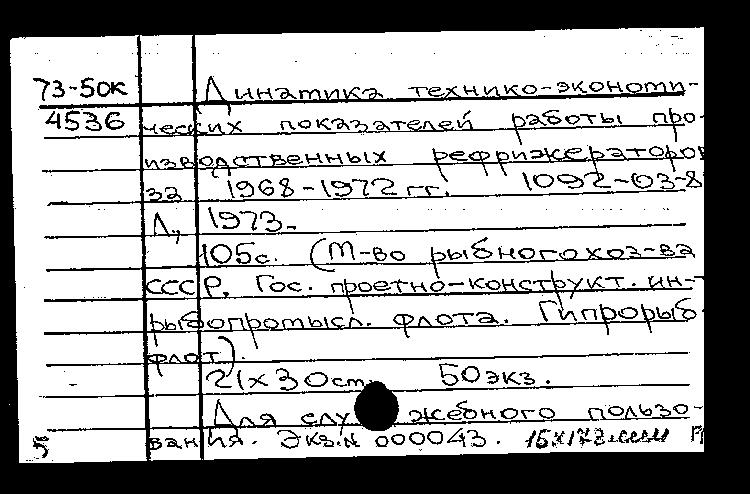 73-50к Динатика технико-экономи-
4536 ческих показателей работы про-
изводственных рефрижераторов
за 1968-1972 гг. 1092-03-8
Л., 1973.
105с. (М-во рыбного хоз-ва
СССР, Гос. проетно-конструкт. ин-т
рыбопромысл. флота. Гипрорыб-
флот).
21х30см. 50 экз.
Для служебного пользо-
5 вания. Экз.N 000043.